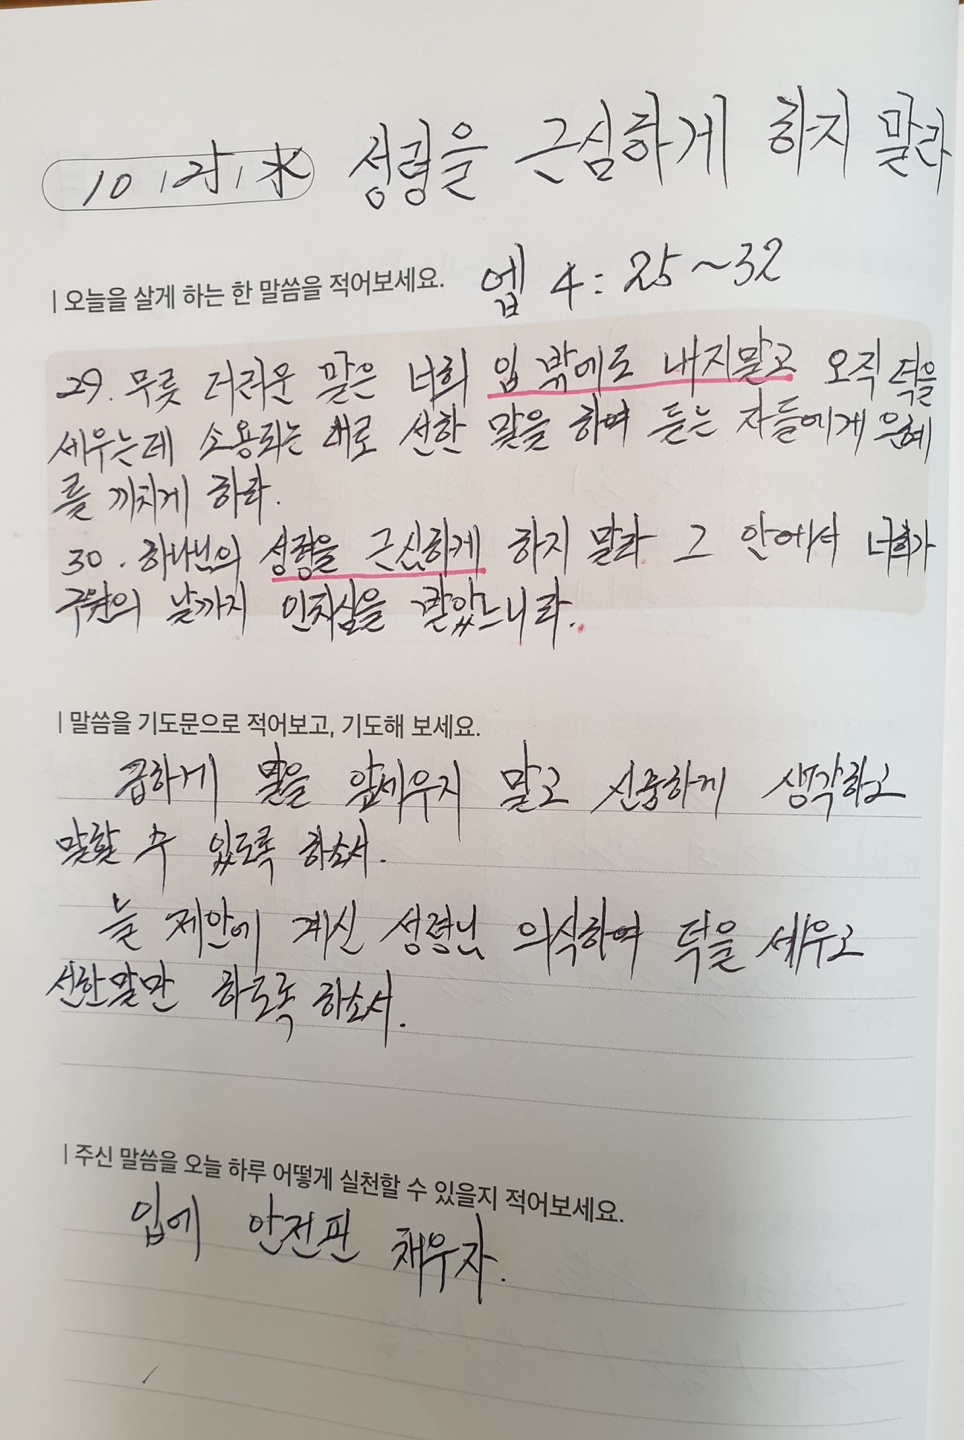 10 / 25 / 水 성령을 근심하게 하지 말라
| 오늘을 살게 하는 한 말씀을 적어보세요. 엡 4 : 25 ~ 32
29. 무릇 더러운 말은 너희 입 밖에도 내지말고 오직 덕을
세우는데 소용되는 대로 선한 말을 하여 듣는 자들에게 은혜
를 끼치게 하라.
30. 하나님의 성령을 근심하게 하지 말라 그 안에서 너희가
구원의 날까지 인치심을 받았느니라.
| 말씀을 기도문으로 적어보고, 기도해 보세요.
급하게 말을 앞세우지 말고 신중하게 생각하고
말할 수 있도록 하소서.
늘 제안에 계신 성령님 의식하여 덕을 세우고
선한말만 하도록 하소서.
| 주신 말씀을 오늘 하루 어떻게 실천할 수 있을지 적어보세요.
입에 안전핀 채우자.